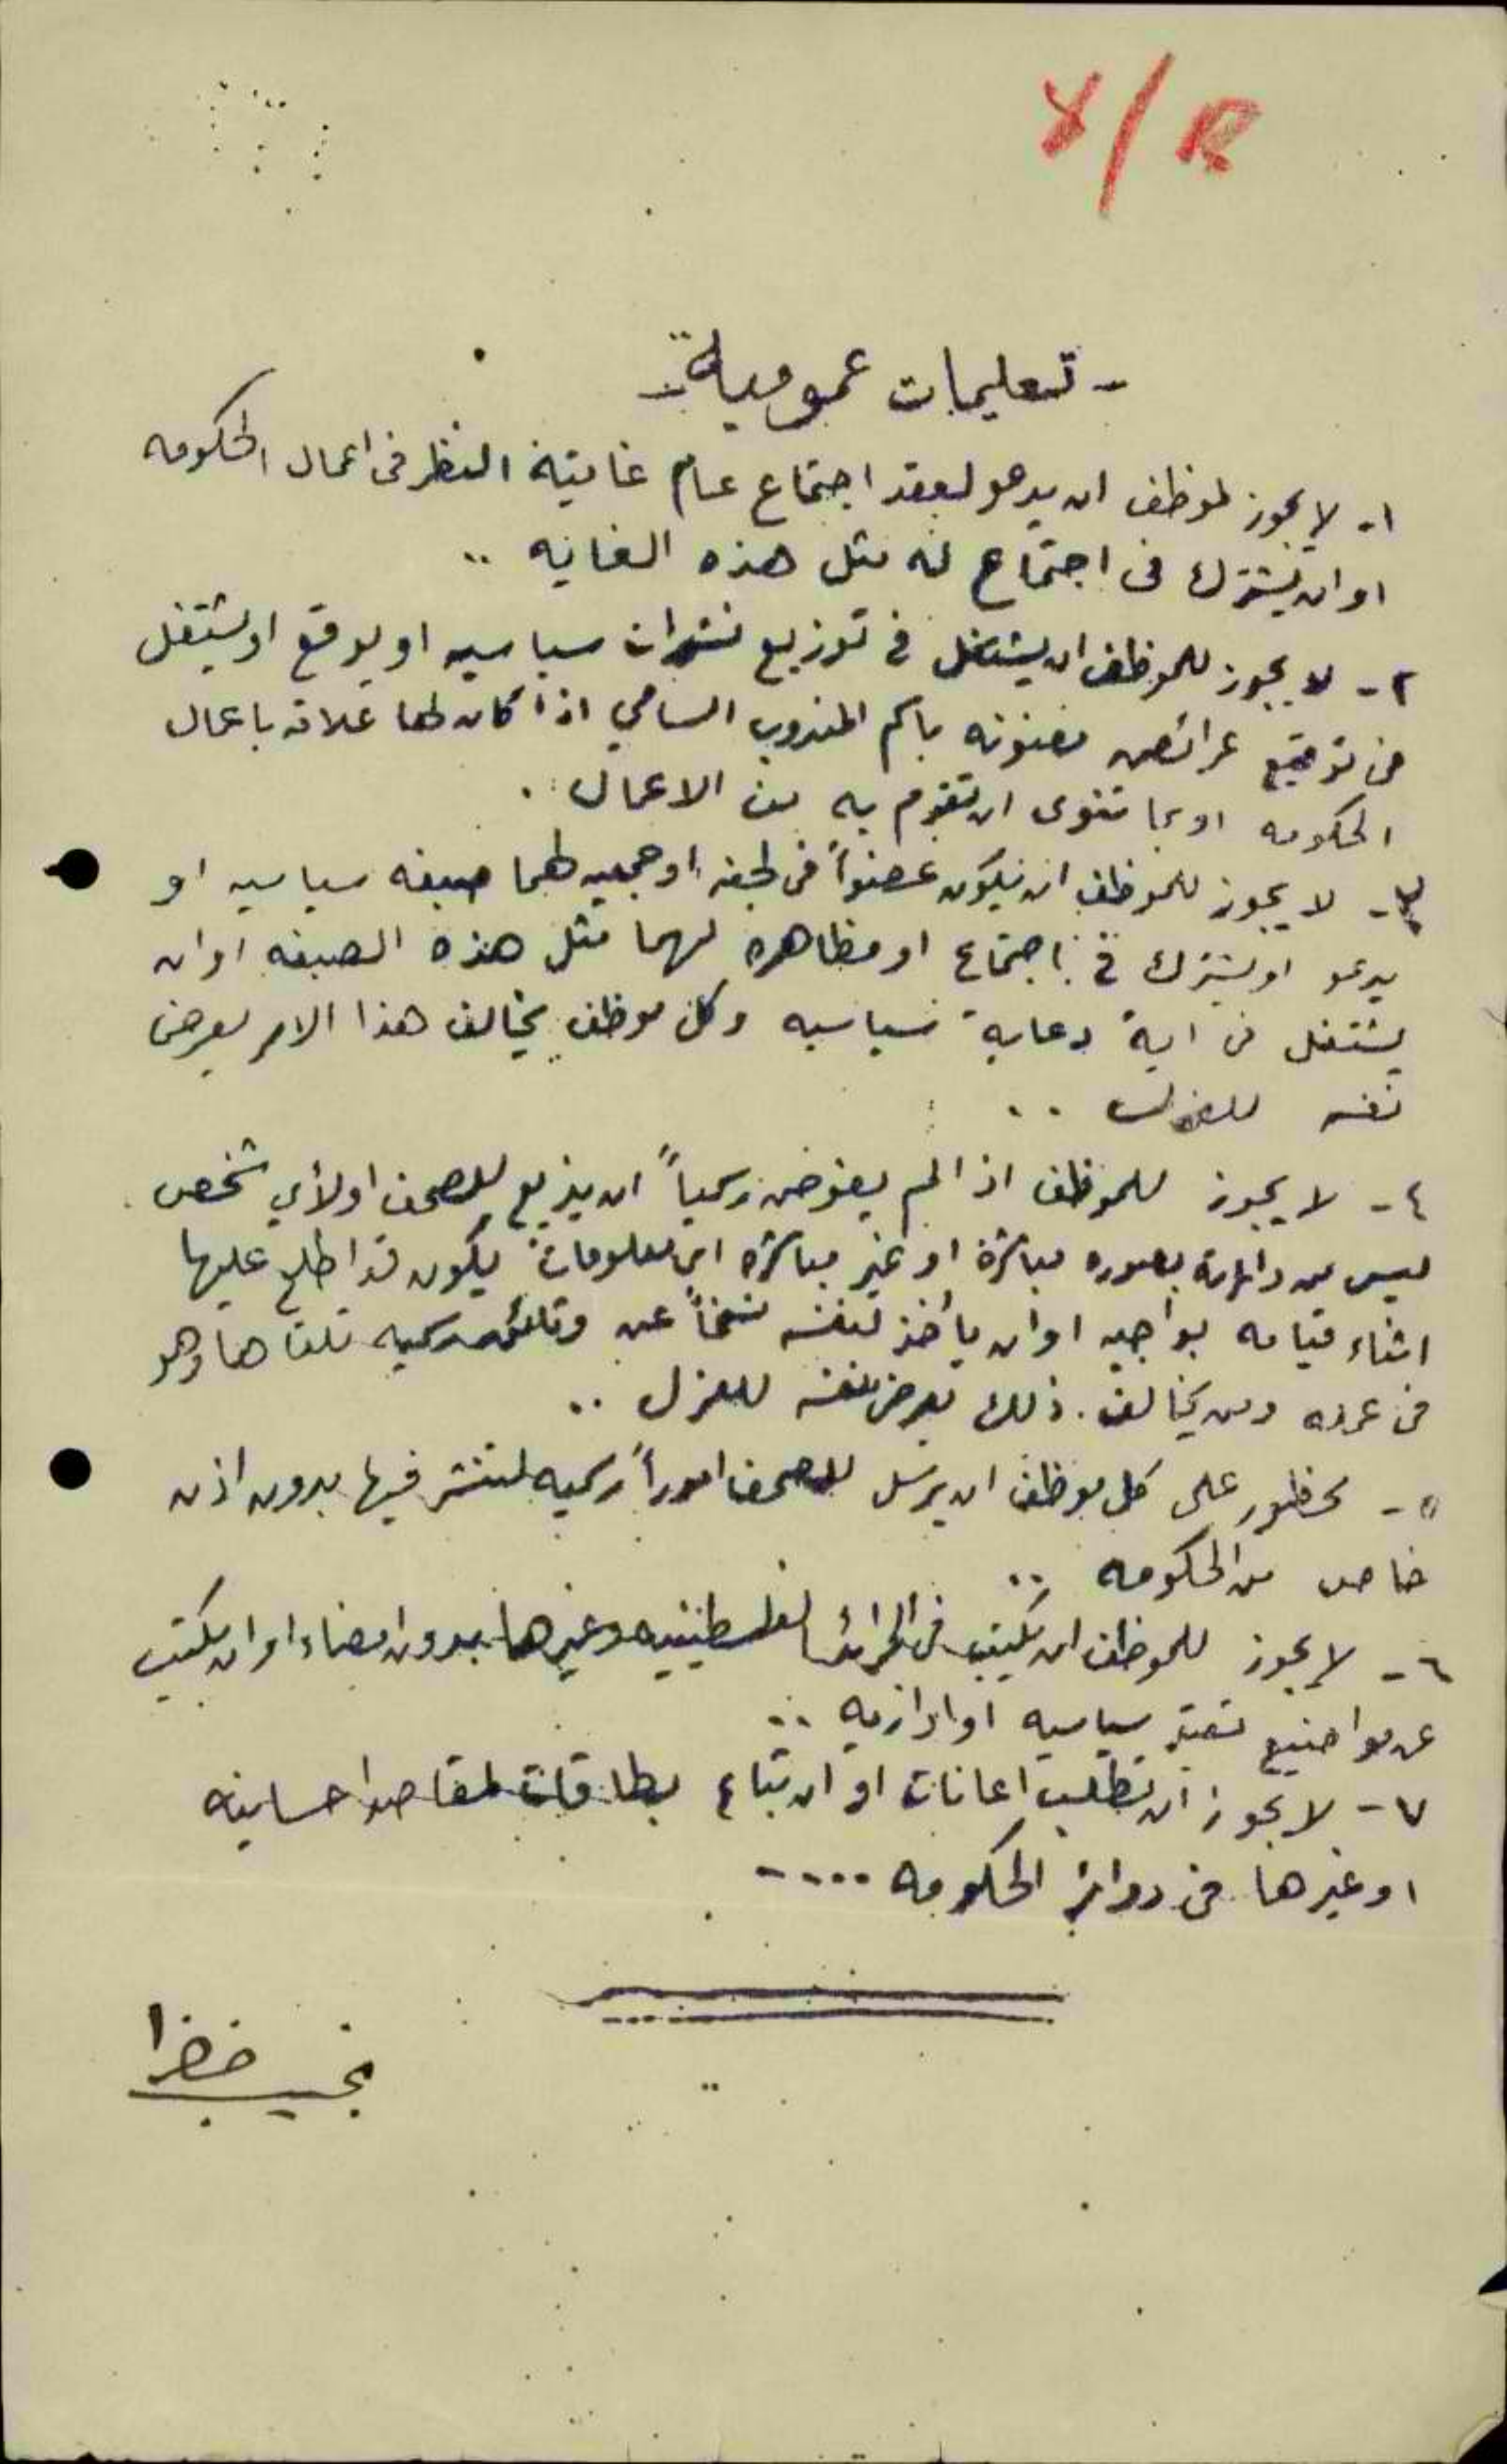 8/R
- تعليمات عمومية -
١- لا يجوز لموظف ان يدعو لعقد اجتماع عام غايتة النظر فى اعمال الحكومه
او ان يشترك فى اجتماع له مثل هذه الغايه ..
٢- لا يجوز للموظف ان يشتغل في توزيع نشرات سياسيه او يوقع او يشتغل
فى توقيع عرائض معنونه باسم المندوب السامي اذا كان لها علاقه باعمال
الحكومه او بما تنوى ان تقوم به من الاعمال .
٣- لا يجوز للموظف ان يكون عضواً فى لجنه او جمعيه لهما صبغه سياسيه او
يدعو او يشترك في اجتماع او مظاهره لهما مثل هذه الصبغه او ان
يشتغل فى اية دعاية سياسيه وكل موظف يخالف هذا الامر يعرض
نفسه للعزل ..
٤- لا يجوز للموظف اذا لم يفوض رسمياً ان يذيع للصحف او لأي شخص
ليس من دائرته بصوره مباشرة او غير مباشره اي معلومات يكون قد اطلع عليها
اثناء قيامه بواجبه او ان يأخذ لنفسه نسخاً عن وثائق رسميه تلقاها وهو
فى عمله ومن يخالف ذلك يعرض نفسه للعزل ..
٥- محظور على كل موظف ان يرسل للصحف اموراً رسميه لتنشر فيها بدون اذن
خاص من الحكومه ..
٦- لا يجوز للموظف ان يكتب فى الجرائد الفلسطينيه وغيرها بدون امضاء او ان يكتب
عن مواضيع تعتبر سياسيه او اداريه ..
٧- لا يجوز ان تطلب اعانات او ان تباع بطاقات لمقاصد احسانيه
او غيرها فى دوائر الحكومه ....
نجيب خضرا